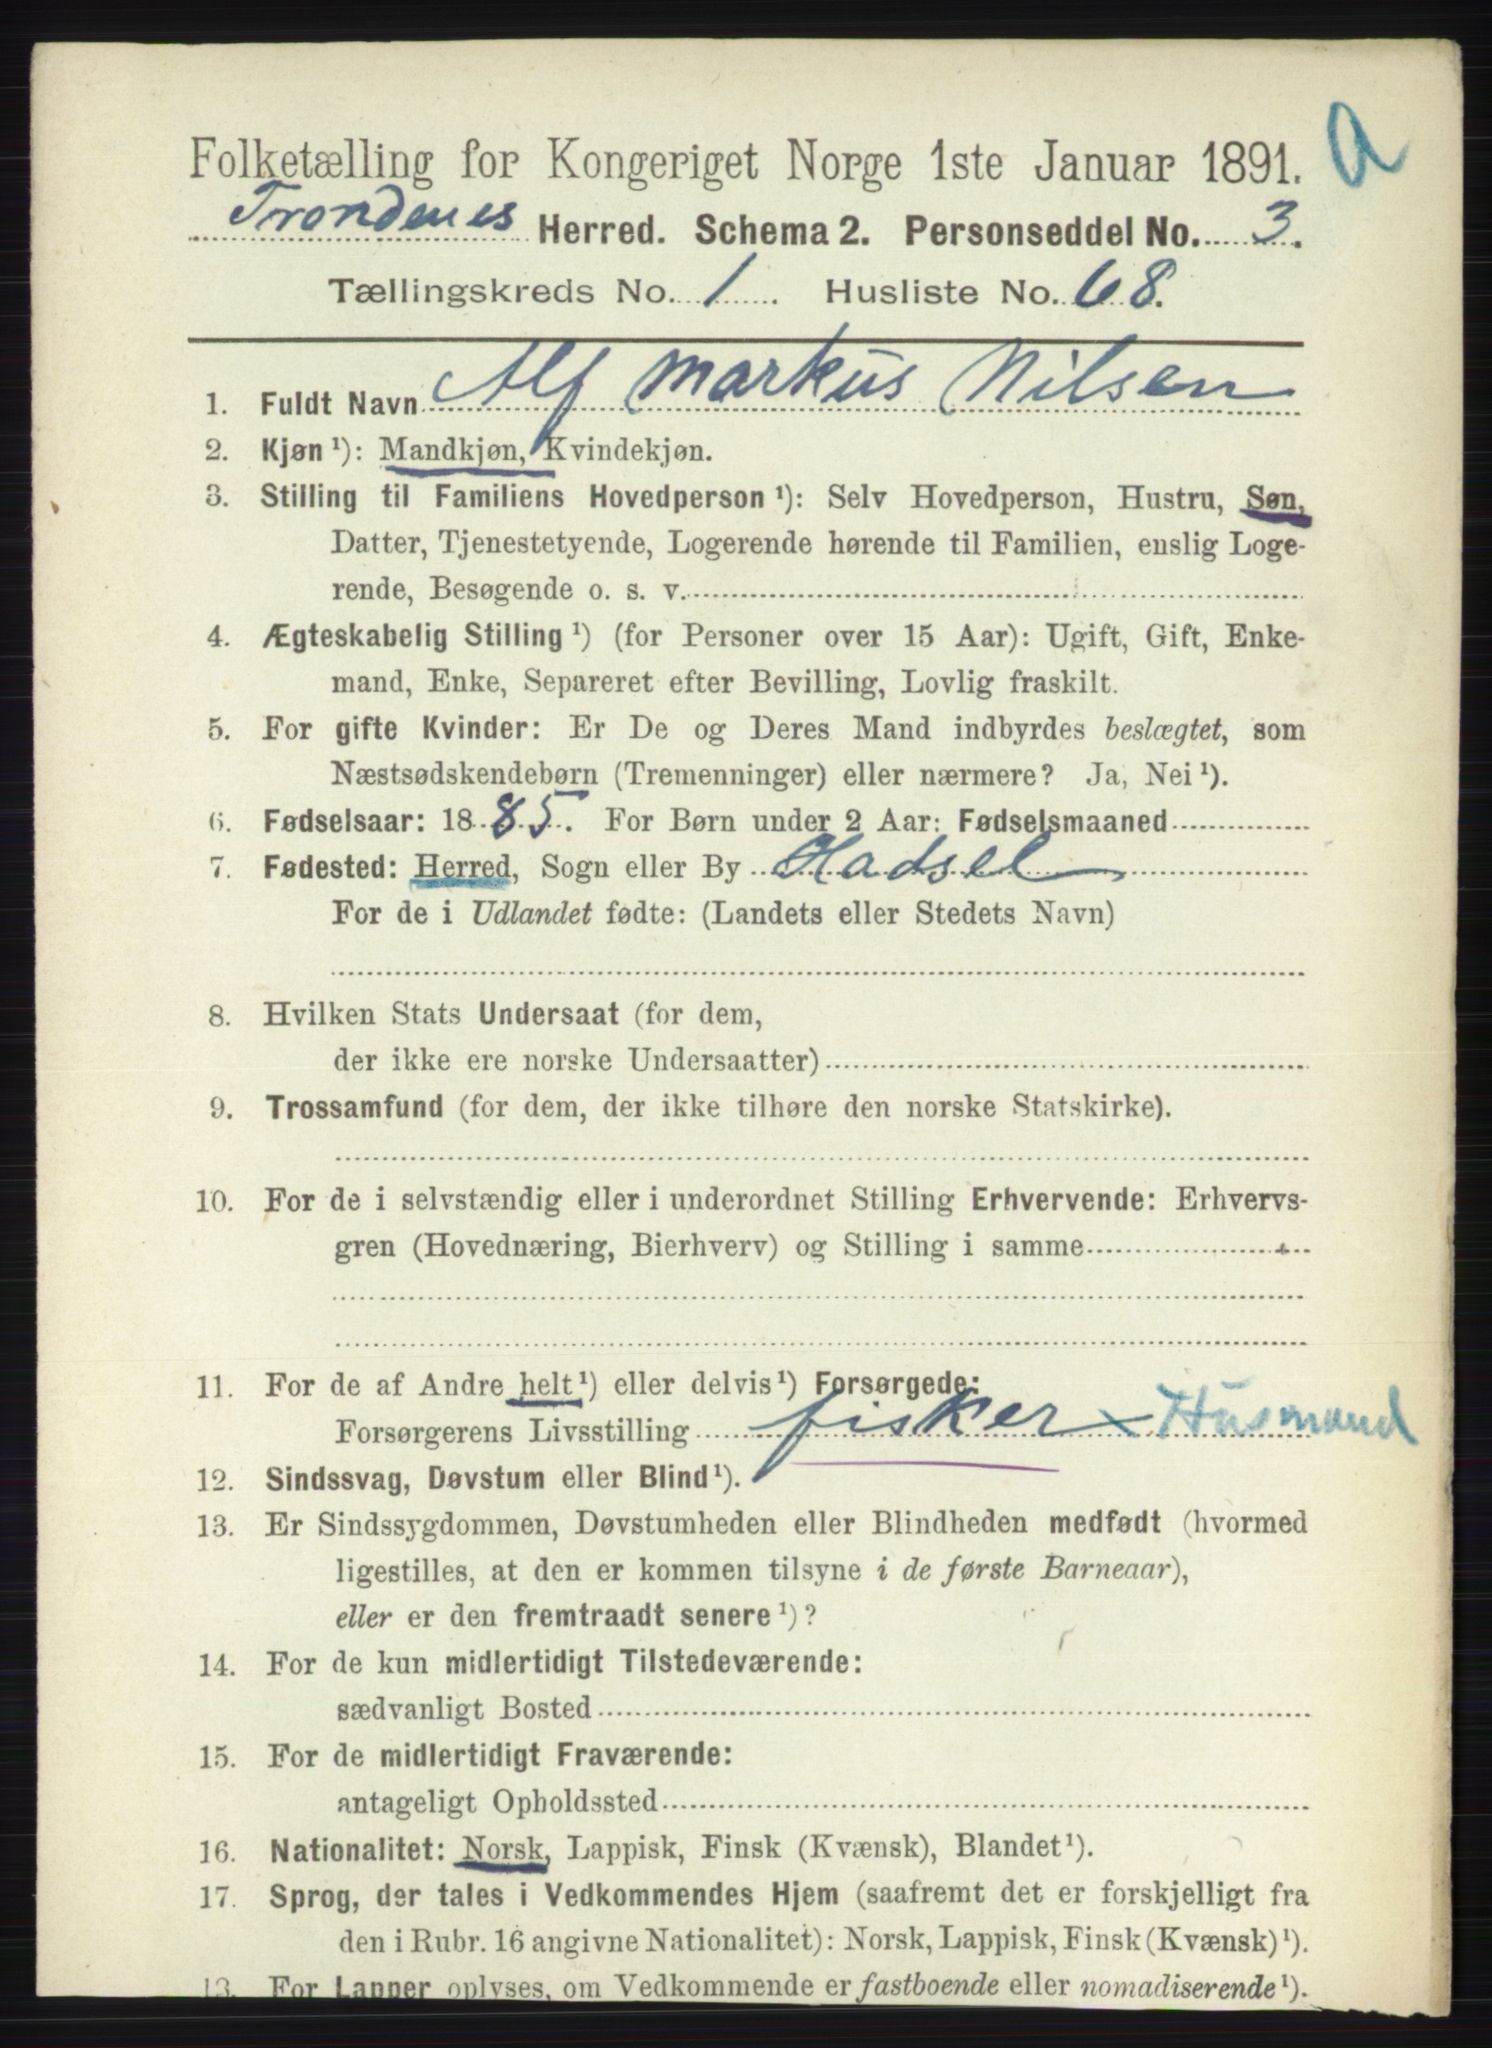 a
Folketælling for Kongeriget Norge 1ste Januar 1891.
Trondenes Herred. Schema 2. Personseddel No. 3.
Tællingskreds No. 1. Husliste No. 68.
1. Fuldt Navn Alf Markus Nilsen
2. Kjøn ¹): Mandkjøn, Kvindekjøn.
3. Stilling til Familiens Hovedperson ¹): Selv Hovedperson, Hustru, Søn,
Datter, Tjenestetyende, Logerende hørende til Familien, enslig Loge-
rende, Besøgende o. s. v.
4. Ægteskabelig Stilling ¹) (for Personer over 15 Aar): Ugift, Gift, Enke-
mand, Enke, Separeret efter Bevilling, Lovlig fraskilt.
5. For gifte Kvinder: Er De og Deres Mand indbyrdes beslægtet, som
Næstsødskendebørn (Tremenninger) eller nærmere? Ja, Nei ¹).
6. Fødselsaar: 1885. For Børn under 2 Aar: Fødselsmaaned
7. Fødested: Herred, Sogn eller By Hadsel
For de i Udlandet fødte: (Landets eller Stedets Navn)
8. Hvilken Stats Undersaat (for dem,
der ikke ere norske Undersaatter)
9. Trossamfund (for dem, der ikke tilhøre den norske Statskirke).
10. For de i selvstændig eller i underordnet Stilling Erhvervende: Erhvervs-
gren (Hovednæring, Bierhverv) og Stilling i samme
11. For de af Andre helt ¹) eller delvis ¹) Forsørgede:
Forsørgerens Livsstilling fisker x Husmand
12. Sindssvag, Døvstum eller Blind ¹).
13. Er Sindssygdommen, Døvstumheden eller Blindheden medfødt (hvormed
ligestilles, at den er kommen tilsyne i de første Barneaar),
eller er den fremtraadt senere ¹)?
14. For de kun midlertidigt Tilstedeværende:
sædvanligt Bosted
15. For de midlertidigt Fraværende:
antageligt Opholdssted
16. Nationalitet: Norsk, Lappisk, Finsk (Kvænsk), Blandet ¹).
17. Sprog, der tales i Vedkommendes Hjem (saafremt det er forskjelligt fra
den i Rubr. 16 angivne Nationalitet): Norsk, Lappisk, Finsk (Kvænsk) ¹).
13. For Lapper oplyses, om Vedkommende er fastboende eller nomadiserende ¹).